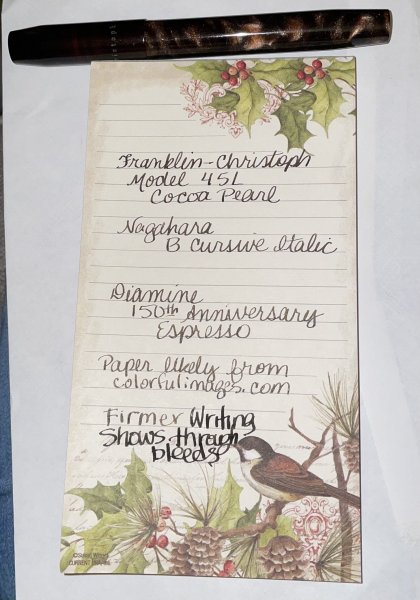 Franklin-Christoph
Model 45L
Cocoa Pearl
Nagahara
B Cursive Italic
Diamine
150th Anniversary
Espresso
Paper likely from
colorfulimages.com
Firmer Writing
Shows through
bleeds